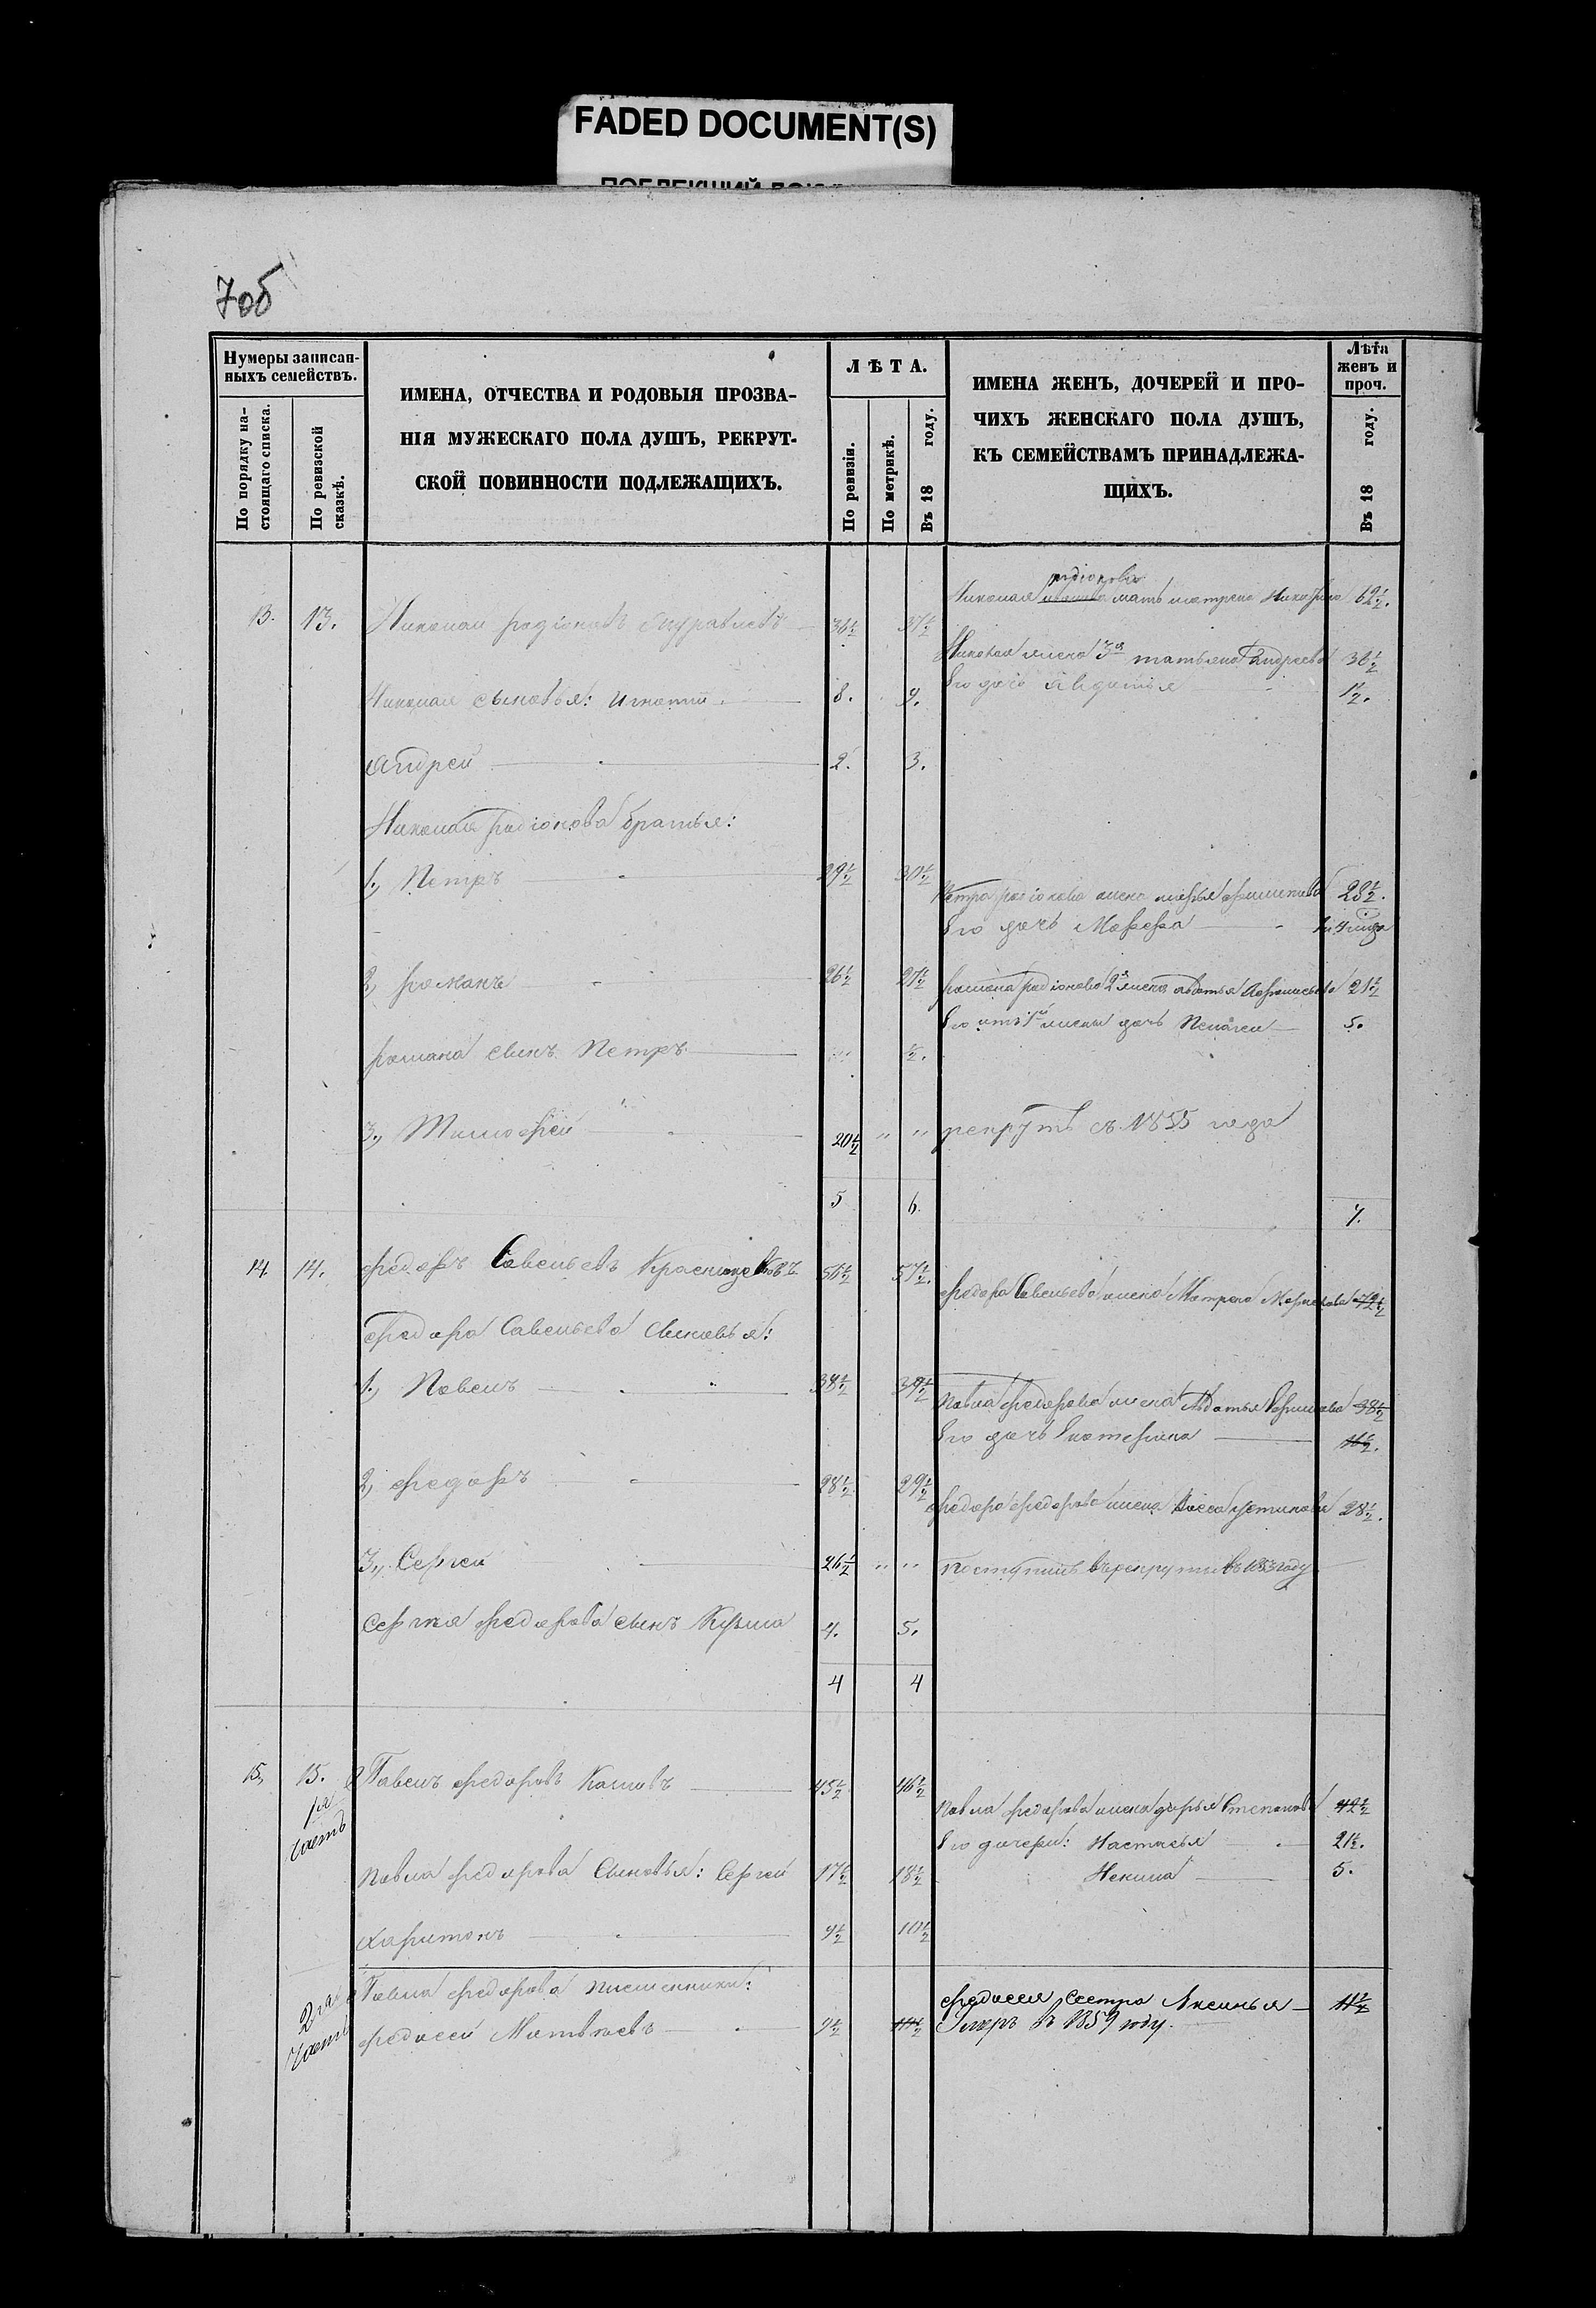 FADED DOCUMENT(S)
7об
Нумеры записан-
ныхъ семействъ.
По порядку на-
стоящаго списка.
По ревизской
сказкѣ.
ИМЕНА, ОТЧЕСТВА И РОДОВЫЯ ПРОЗВА-
НІЯ МУЖЕСКАГО ПОЛА ДУШЪ, РЕКРУТ-
СКОЙ ПОВИННОСТИ ПОДЛЕЖАЩИХЪ.
ЛѢТА.
По ревизіи.
По метрикѣ.
Въ 18 году.
ИМЕНА ЖЕНЪ, ДОЧЕРЕЙ И ПРО-
ЧИХЪ ЖЕНСКАГО ПОЛА ДУШЪ,
КЪ СЕМЕЙСТВАМЪ ПРИНАДЛЕЖА-
ЩИХЪ.
Лѣта
женъ и
проч.
Въ 18 году.
радіонова
Николая мать матрена 62½.
13. 13. Николай радіоновъ 36½ 37½
Николая жена 3я татьяна андреева 36½
Его дочь Авдотья 1½.
Николая сыновья: игнатій 8. 9.
андрей 2. 3.
Николая радіонова братья:
1, Петръ 29½ 30½
Петра радіонова жена марья филипова 28½.
Его дочь
2, романъ 26½ 27½
романа радіонова 2я жена авдотья 21½
Его отъ 1й жены дочь Пелагея 5.
романа сынъ Петръ ½.
3, Тимофей 20½ " " рекрутъ съ 1855 года
5 6. 7.
14 14. федоръ Савельевъ 56½ 57½.
федора Савельева жена Матрена
федора Савельева сыновья:
1, Павелъ 38½ 39½
Павла федорова жена Авдотья 38½
Его дочь Екатерина 16½.
2, федоръ 28½ 29½
федора федорова жена Васса устинова 28½.
3, Сергей 26½ " " поступилъ в рекруты въ 1853 году
Сергея федорова сынъ Кузма 4. 5.
4 4
15, 15. Павелъ федоровъ 45½ 46½
1я
часть
Павла федорова жена дарья Степанова 42½
Его дочери: Настасья 21½.
Павла федорова Сыновья: Сергей 17½ 18½
5.
харитонъ 9½ 10½
2я
часть
Павла федорова племянники:
федосей Матвѣевъ 9½
федосея сестра Аксинья 11½
Умеръ в 1859 году.